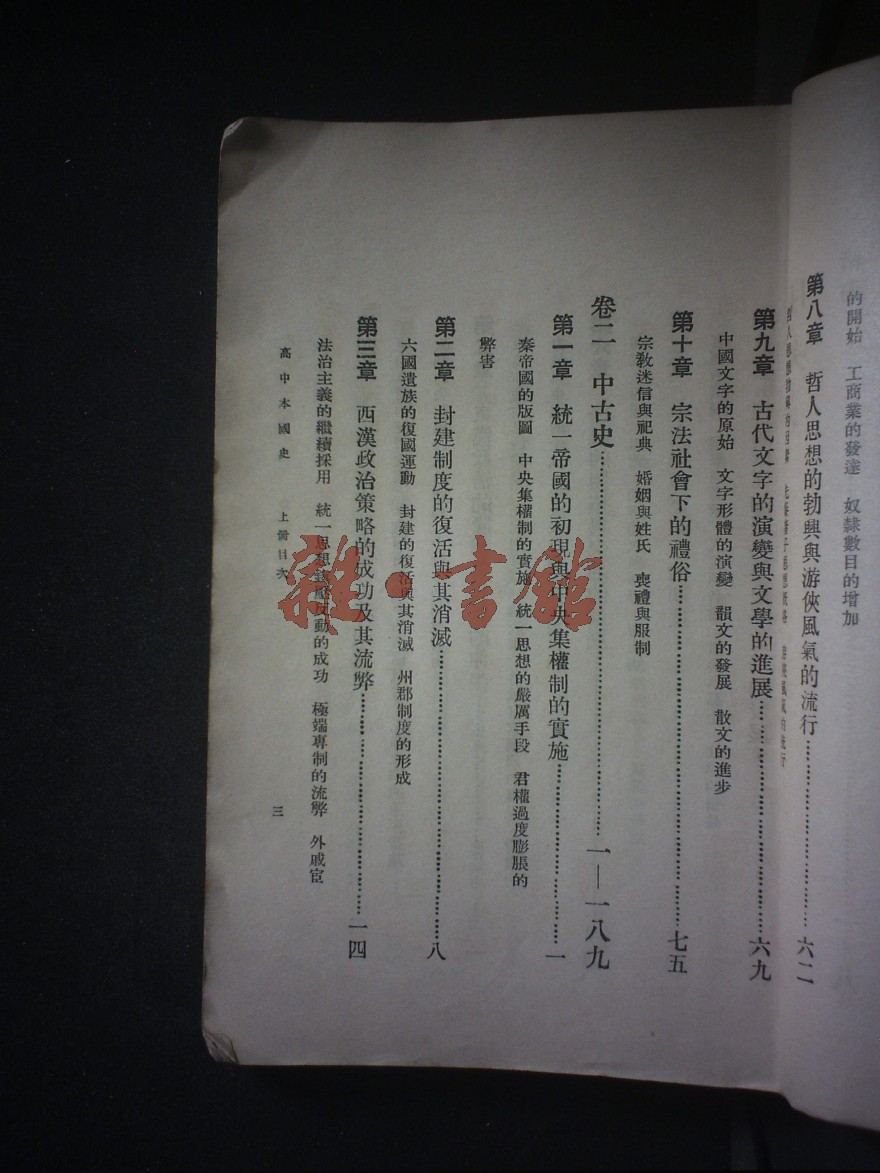 的開始　工商業的發達　奴隸數目的增加
第八章　哲人思想的勃興與游俠風氣的流行……六二
第九章　古代文字的演變與文學的進展……六九
中國文字的原始　文字形體的演變　韻文的發展　散文的進步
第十章　宗法社會下的禮俗……七五
宗教迷信與祀典　婚姻與姓氏　喪禮與服制
卷二　中古史……一—一八九
第一章　統一帝國的初現與中央集權制的實施……一
秦帝國的版圖　中央集權制的實施　統一思想的嚴厲手段　君權過度膨脹的
弊害
第二章　封建制度的復活與其消滅……八
六國遺族的復國運動　封建的復活與其消滅　州郡制度的形成
第三章　西漢政治策略的成功及其流弊……一四
法治主義的繼續採用　統一思想　反動的成功　極端專制的流弊　外戚宦
高中本國史　上冊目次　三
雜·書館